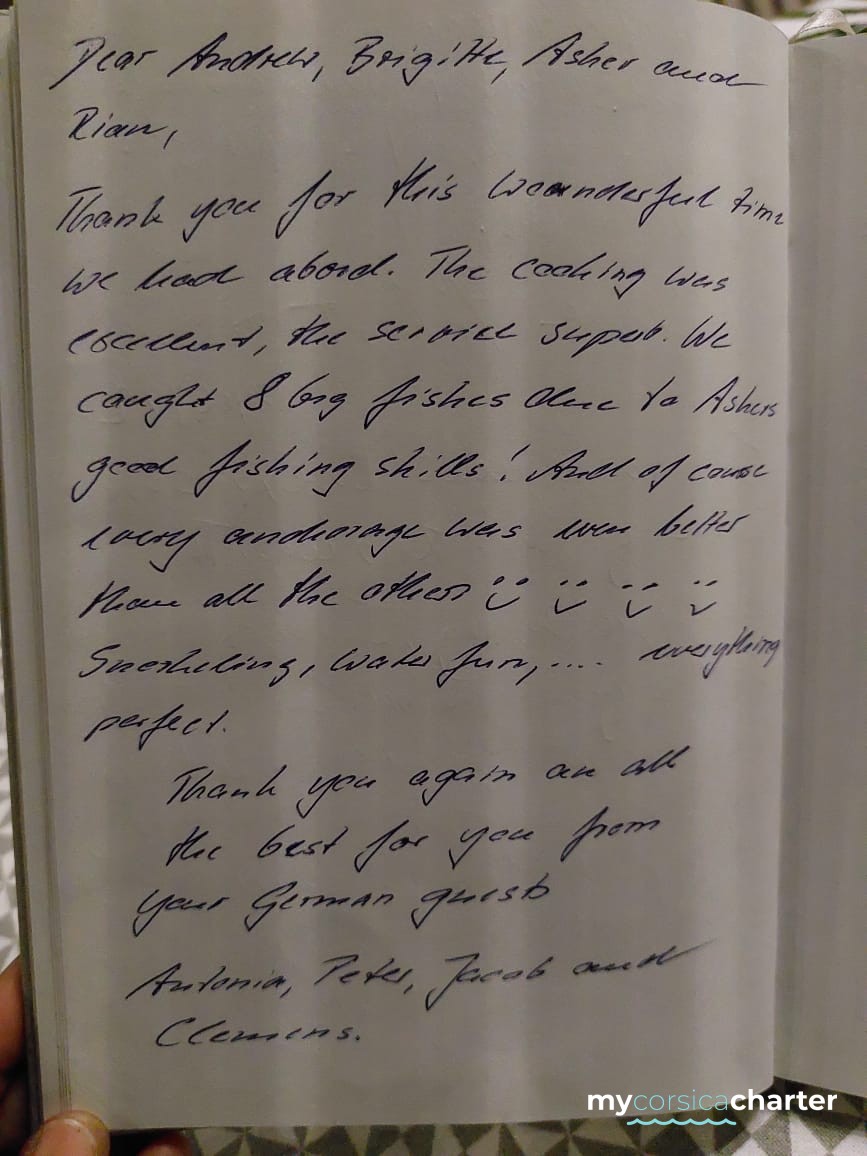 Dear Andrew, Brigitte, Asher and
Rian,
Thank you for this woanderful time
we had abord. The cooking was
excellent, the service superb. We
caught 8 big fishes due to Ashers
good fishing skills! And of course
every anchorage was even better
than all the others
Snorkeling, water fun, .... everything
perfect.
Thank you again an all
the best for you from
your German guests
Antonia, Peter, Jacob and
Clemens.
mycorsicacharter